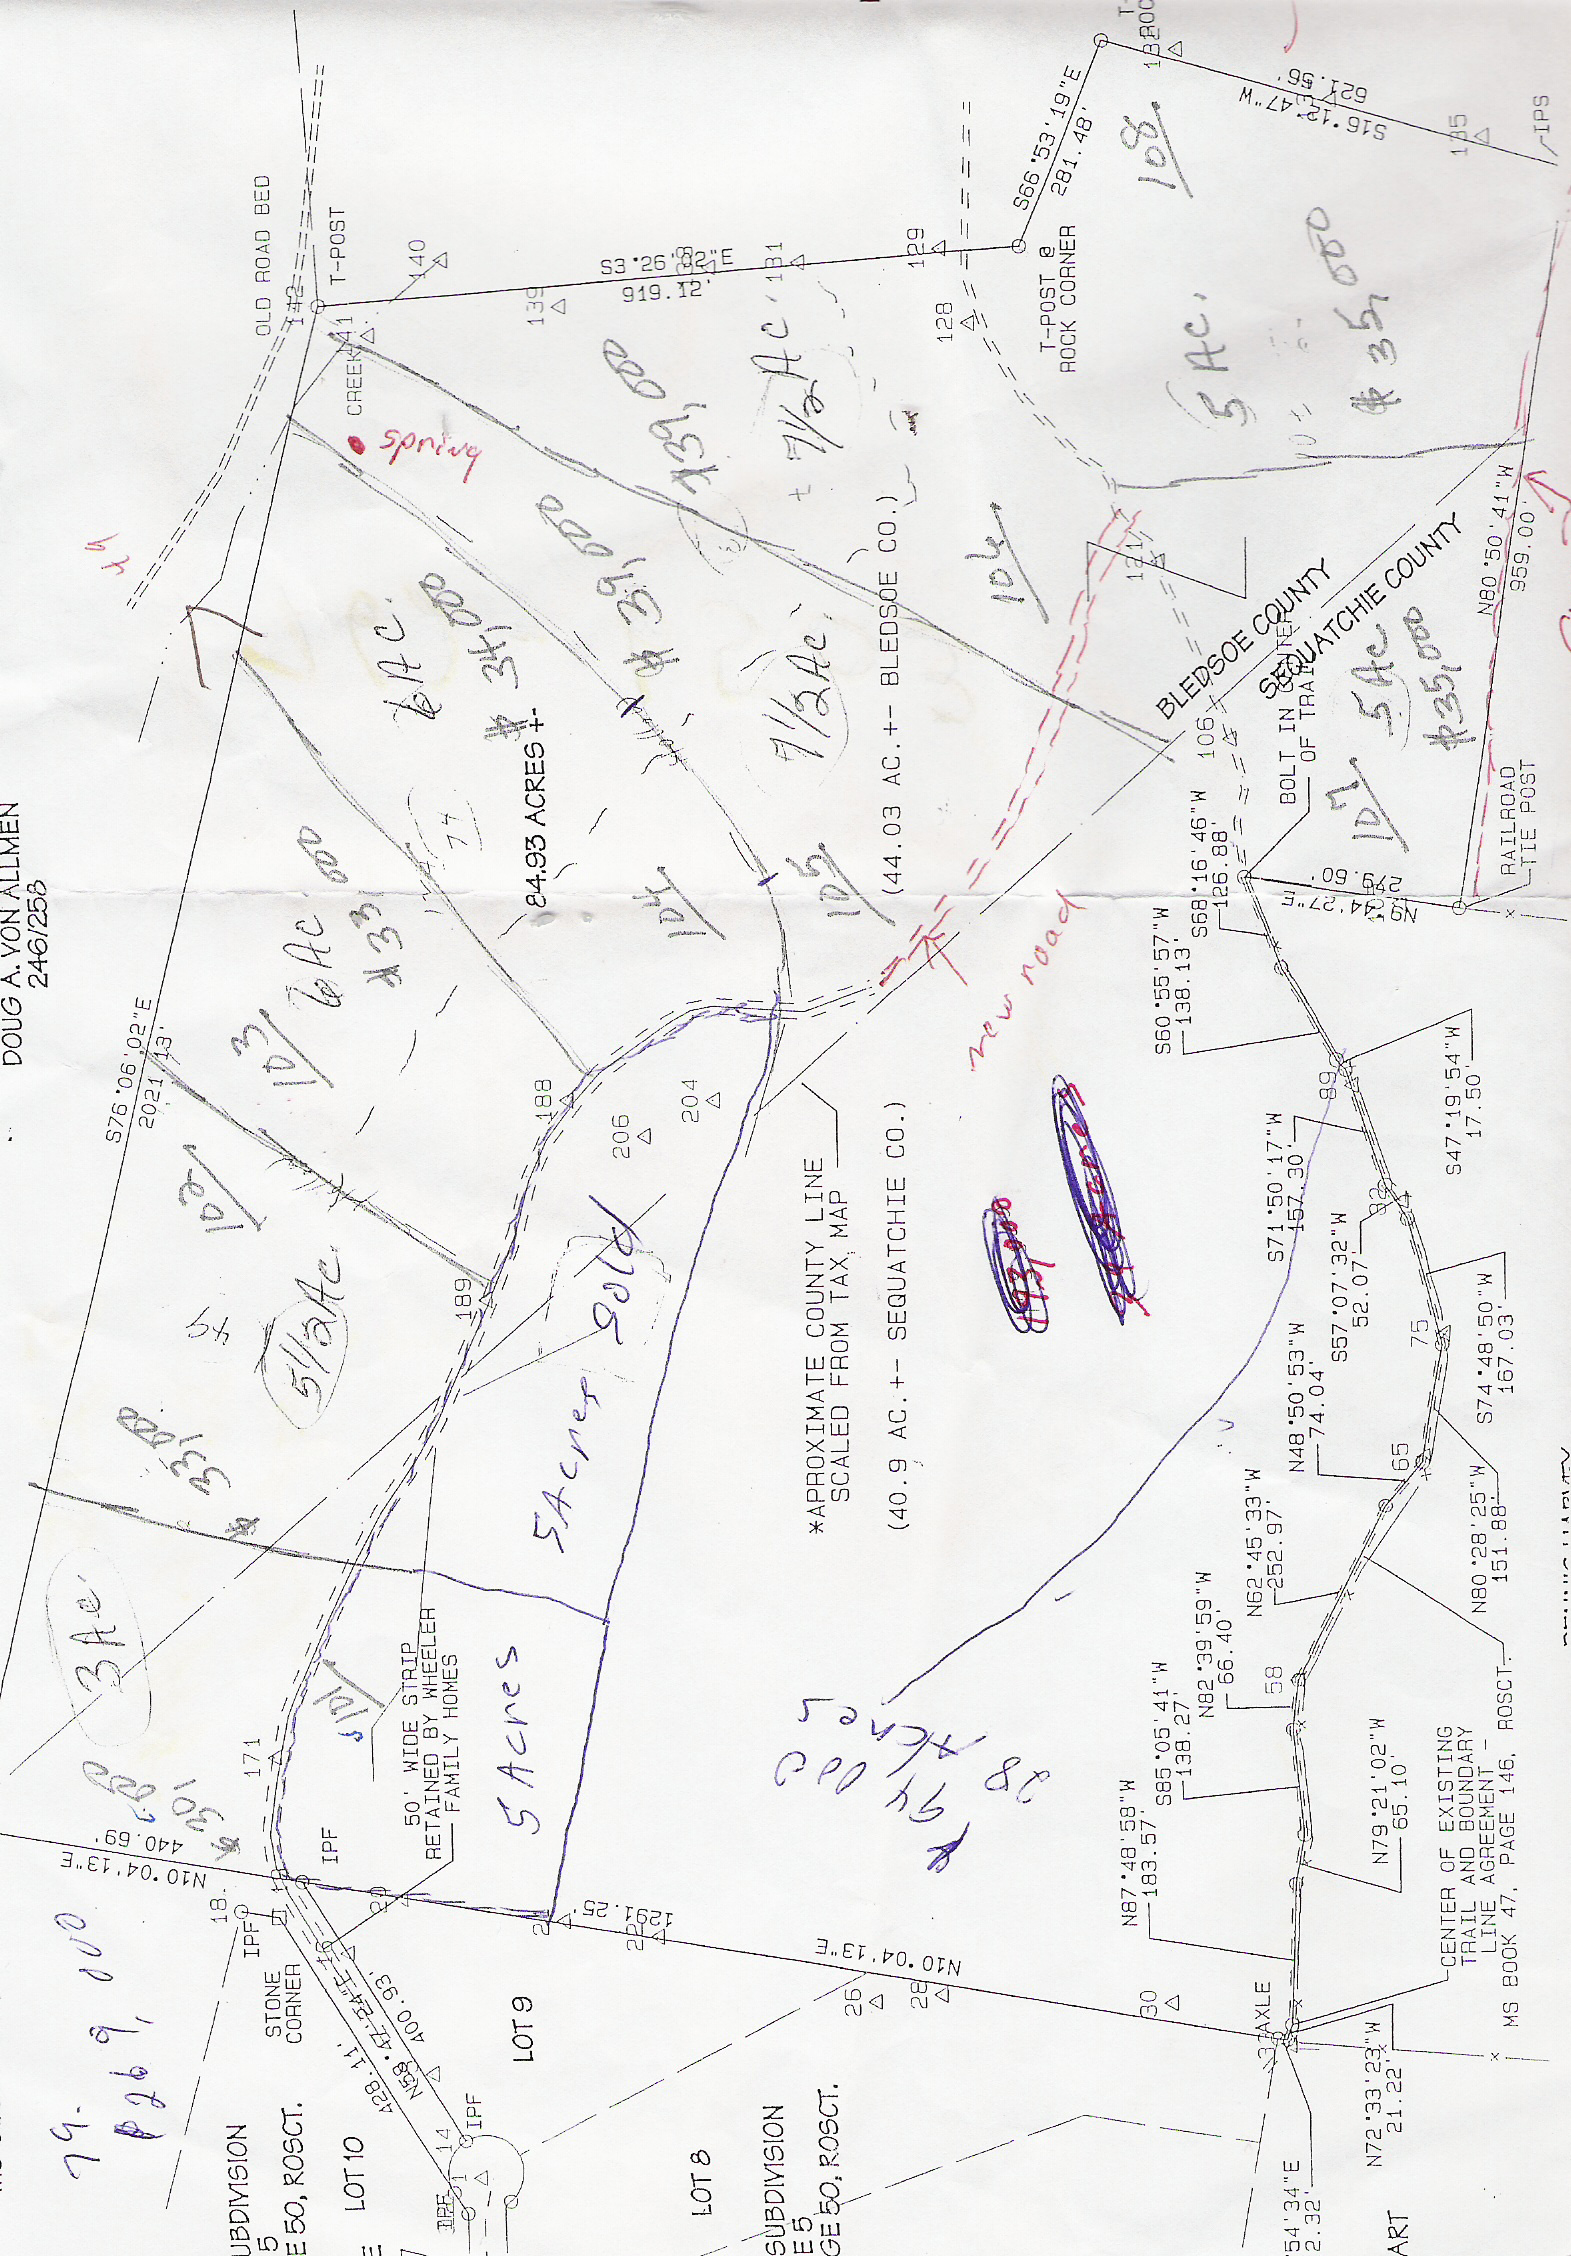 DOUG A. VON ALLMEN
246/258
S76°06'02"E
2021.13'
OLD ROAD BED
142
T-POST
140
CREEK
141
spring
139
S3°26'02"E
919.12'
131
129
128
S66°53'19"E
281.48'
T-POST @
ROCK CORNER
S16°12'47"W
621.56'
135
IPS
108
5 AC.
$35,000
$39,000
± 7 1/2 AC.
$39,000
7 1/2 AC.
106
121
6 AC.
$34,000
84.93 ACRES +-
74
104
105
(44.03 AC.+- BLEDSOE CO.)
6 AC.
$33,000
103
102
5 1/2 AC.
49
$33,000
3 AC.
$30,000
101
BLEDSOE COUNTY
SEQUATCHIE COUNTY
N80°50'41"W
959.00'
5 AC
$35,000
107
106
BOLT IN CENTER
OF TRAIL
RAILROAD
TIE POST
N9°44'27"E
279.60'
S68°16'46"W
126.88'
S60°55'57"W
138.13'
89
S47°19'54"W
17.50'
S71°50'17"W
157.30'
S57°07'32"W
52.07'
75
S74°48'50"W
167.03'
N48°50'53"W
74.04'
65
N80°28'25"W
151.88'
N62°45'33"W
252.97'
N82°39'59"W
66.40'
58
S85°05'41"W
138.27'
N79°21'02"W
65.10'
N87°48'58"W
183.57'
new road
188
206
204
189
sold
5 Acres
5 Acres
*APROXIMATE COUNTY LINE
SCALED FROM TAX MAP
(40.9 AC.+- SEQUATCHIE CO.)
$94,000
28 Acres
171
50' WIDE STRIP
RETAINED BY WHEELER
FAMILY HOMES
IPF
N10°04'13"E
440.69'
18
IPF
STONE
CORNER
16
20
1291.25'
N10°04'13"E
26
28
30
AXLE
CENTER OF EXISTING
TRAIL AND BOUNDARY
LINE AGREEMENT -
MS BOOK 47, PAGE 146, ROSCT.
N72°33'23"W
21.22'
54'34"E
2.32'
ART
79.
$269,000
428.11'
N58°42'24"E
400.93'
14
IPF
IPF
LOT 9
LOT 10
LOT 8
UBDIVISION
5
E 50, ROSCT.
SUBDIVISION
E 5
GE 50, ROSCT.